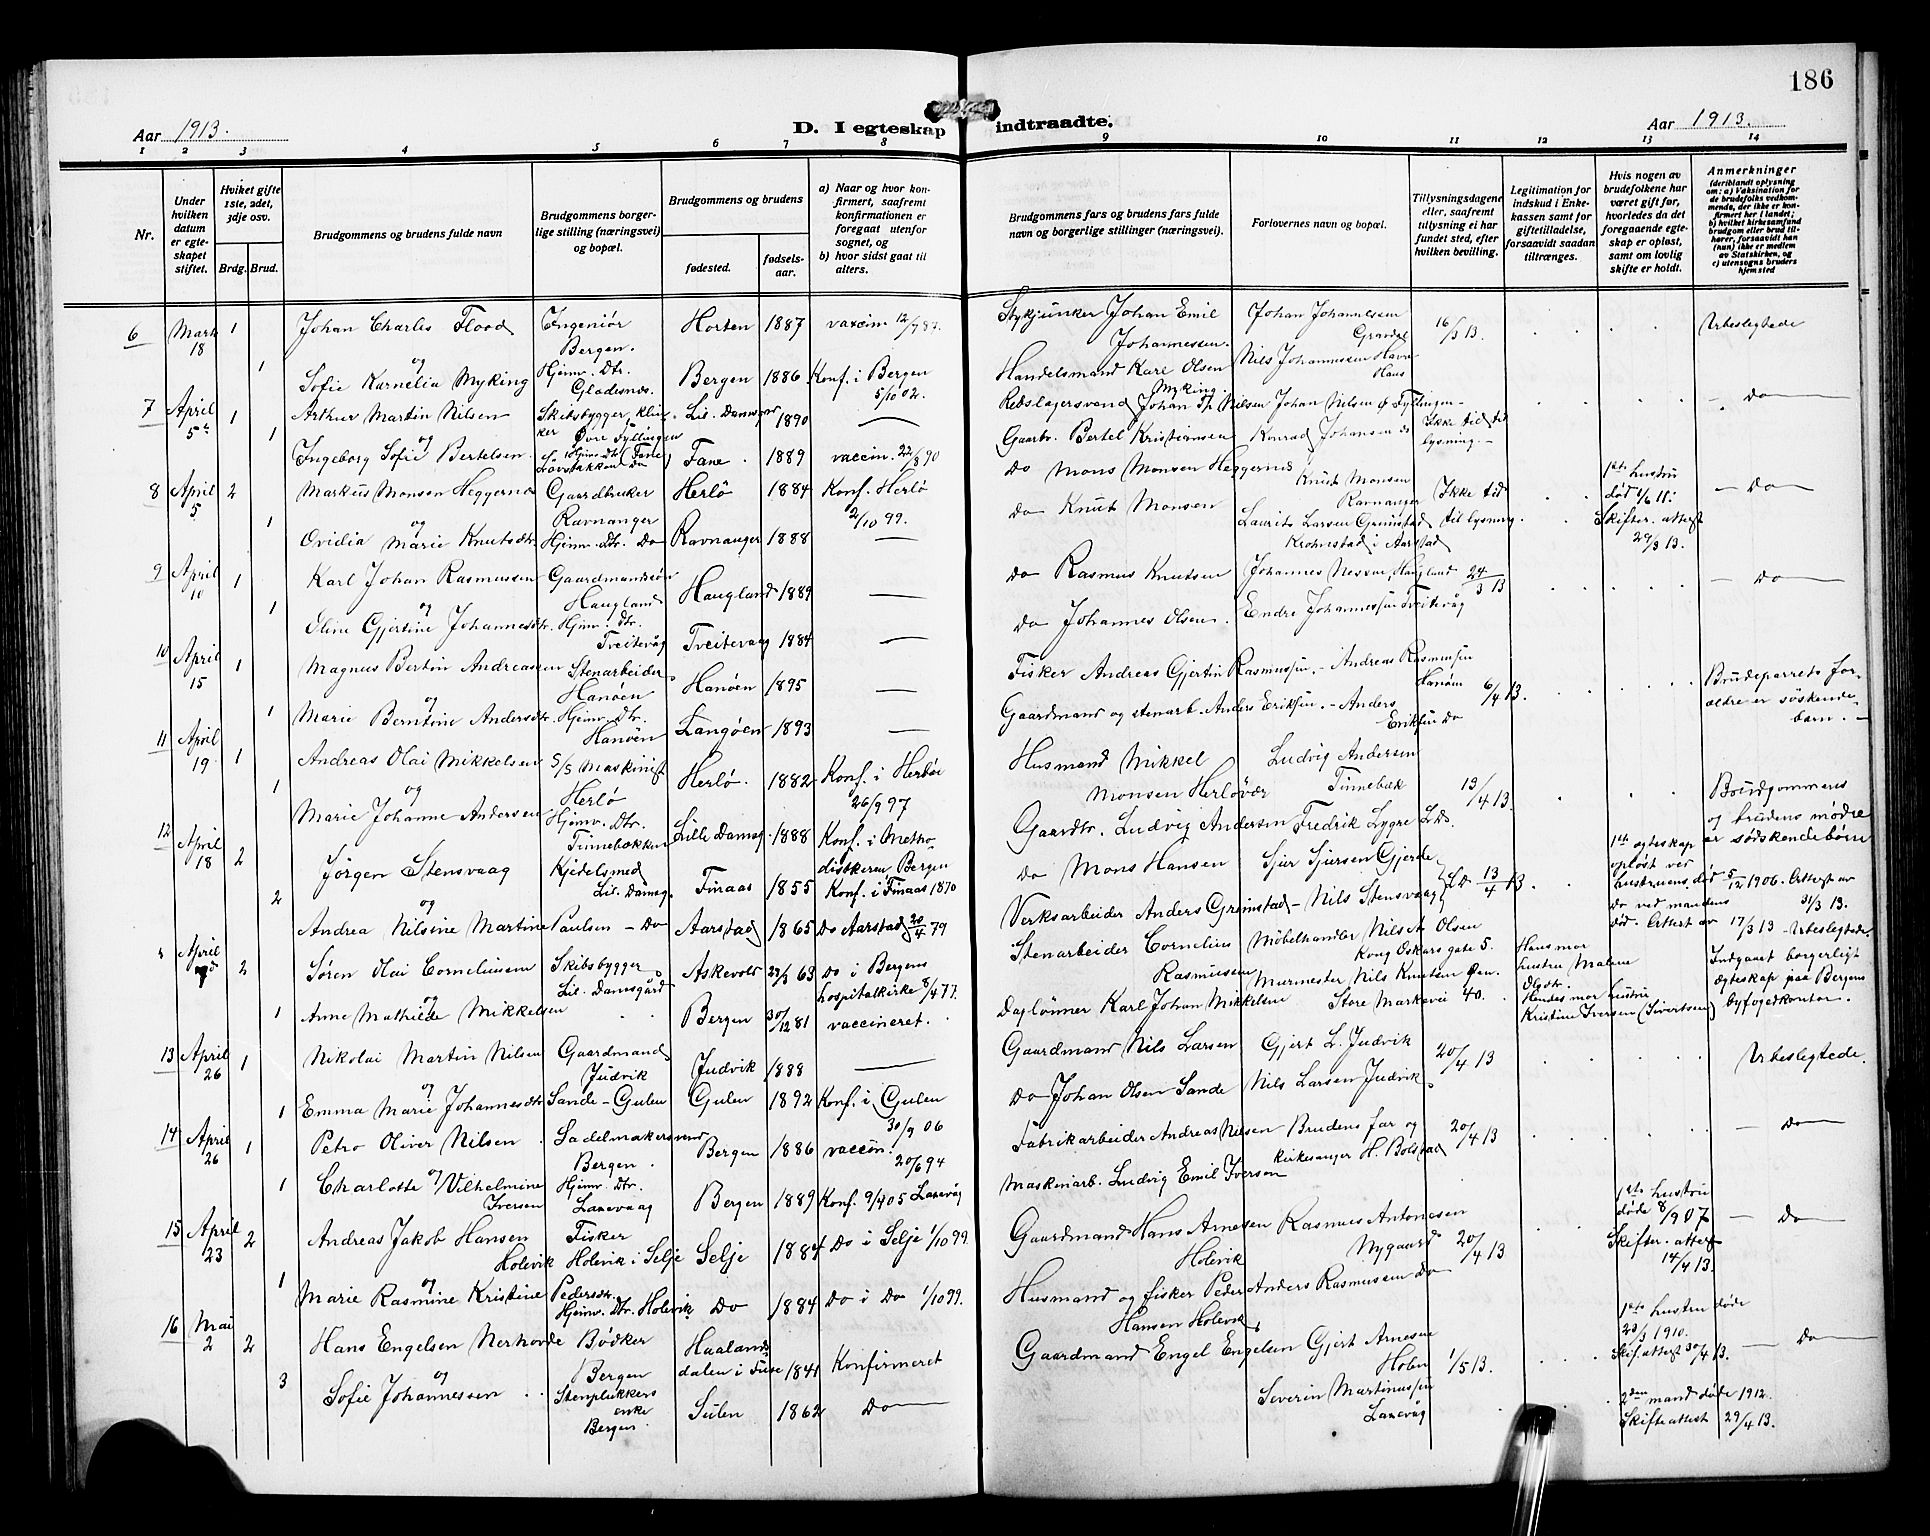 186
Aar 1913.
D. I egteskap indtraadte.
Aar 1913.
1 2 3 4 5 6 7 8 9 10 11 12 13 14
Nr.
Under hvilken datum er egteskapet stiftet.
Hviket gifte 1ste, 2det, 3dje osv.
Brdg. Brud.
Brudgommens og brudens fulde navn
Brudgommens borgerlige stilling (næringsvei) og bopæl.
Brudgommens og brudens
fødested.
fødselsaar.
a) Naar og hvor konfirmert, saafremt konfirmationen er foregaat utenfor sognet, og
b) hvor sidst gaat til alters.
Brudgommens fars og brudens fars fulde navn og borgerlige stillinger (næringsvei).
Forlovernes navn og bopæl.
Tillysningsdagene eller, saafremt tillysning ei har fundet sted, efter hvilken bevilling.
Legitimation for indskud i Enkekassen samt for giftetilladelse, forsaavidt saadan tiltrænges.
Hvis nogen av brudefolkene har været gift før, hvorledes da det foregaaende egteskap er opløst, samt om lovlig skifte er holdt.
Anmerkninger
(deriblandt oplysning om: a) Vaksination for de brudefolks vedkommende, der ikke er konfirmert her i landet; b) hvilket kirkesamfund brudgom eller brud tilhører, forsaavidt han (hun) ikke er medlem av Statskirken, og c) utensogns bruders hjemsted
6 Marts 18 1 Johan Charles Flood Ingeniör Bergen. Horten 1887 vaccin. 12/7 87. Stykjunker Johan Emil Johannessen. Johan Johannessen Gravdal 16/3 13. Ubeslegtede
og
1 Sofie Kornelia Myking Hjemv. Dtr. Gladesnes. Bergen 1886 Konf. i Bergen 5/10 02. Handelsmand Karl Olsen Myking. Nils Johannessen Havnehaus
7 April 5te 1 Arthur Martin Nilsen Skibsbygger, Klinker Øvre Fyllingen Lil. Damsgrd 1890 — Rebslagersvend Johan Th. Nilsen Johan Nilsen Ø Fyllingen Ikke tid til lysning. — Do
og
1 Ingeborg Sofie Bertelsen Hjmv. dtr. Fane 1889 vaccin. 22/8 90 Gaarbr. Bertel Kristiansen Konrad Johansen do
8 April 5 2 Markus Monsen Heggernes Gaardbruker Ravnanger Herlö 1884 Konf. Herlö 2/10 99. Do Mons Monsen Heggernes Knut Monsen Ravnanger Ikke tid til lysning. 1ste hustru död 1/6 11. Skifter. attest 29/3 13. — Do
og
1 Ovidia Marie Knutsdtr. Hjmv. Dtr. Do Ravnanger 1888 — Do Knut Monsen Laurits Larsen Grimstad Krohnstad i Aarstad
9 April 10 1 Karl Johan Rasmussen Gaardmandssön Haugland Haugland 1889 — Do Rasmus Knutsen Johannes Nessen, Haugland 24/3 13 — Do
og
1 Oline Gjertine Johannesdtr. Hjmv. dtr. Tveitevåg Tveitevaag 1884 — Do Johannes Olsen. Endre Johannessen Tveitevåg
10 April 15 1 Magnus Bertin Andreassen Stenarbeider Hanöen Hanöen 1895 — Fisker Andreas Gjertin Rasmussen. Andreas Rasmussen Hanöen 6/4 13. Brudeparrets forældre er söskendebarn.
og
1 Marie Berntine Andersdtr. Hjemv. Dtr. Hanöen Langöen 1893 — Gaardmand og stenarb. Anders Eriksen. Anders Eriksen Do
11 April 19 1 Andreas Olai Mikkelsen S/S Maskinist Herlö Herlö. 1882 Konf. i Herlöe 26/9 97 Husmand Mikkel Monsen Herlövær Ludvig Andersen Tinnebæk 13/4 13. Brudgommens og brudens mödre er södskendebörn
og
1 Marie Johanne Andersen Hjemv. Dtr. Tinnebækken Lille Damsg. 1888 Konf. i Methodistkirken Bergen Gaardbr. Ludvig Andersen Fredrik Lygre L. D.
12 April 18 2 Jörgen Stensvaag Kjedelsmed Lil. Damsg. Finaas 1855 Konf. i Finaas 1870 Do Mons Hansen Sjur Sjursen Gjerde L D 13/4 13 1ste egteskap oplöst ved hustruens död 5/12 1906. Attest av 31/3 13.
og
2 Andrea Nilsine Martine Paulsen – Do Aarstad 1865 Do Aarstad 20/4 79 Verksarbeider Anders Grimstad – Nils Stensvaag Do ved mandens död. Attest av 17/3 13 – Ubeslegtede.
April 2 Sören Olai Corneliussen Skibsbygger Lil. Damsgård Askevold 29/3 63 Do i Bergens hospitalkirke 8/4 77. Stenarbeider Cornelius Rasmussen Möbelhandler Nils A Olsen Kong Oskars gate 5. Hans mor hustru Malene Olsdtr. Indgaaet borgerligt egteskap paa Bergens byfogedkontor.
og
1 Anne Mathilde Mikkelsen Bergen 30/12 81 vaccineret. Daglönner Karl Johan Mikkelsen Murmester Nils Knutsen Store Markevei 40. Hendes mor hustru Kristine Iversen (Sivertsen)
13 April 26 1 Nikolai Martin Nilsen Gaardmand Judvik Judvik 1888 — Gaardmand Nils Larsen Gjert L. Judvik 20/4 13 Ubeslegtede.
og
1 Emma Marie Johannesdtr Sande – Gulen Gulen 1892 Konf. i Gulen 30/9 06 Do Johan Olsen Sande Nils Larsen Judvik
14 April 26 1 Petro Oliver Nilsen Sadelmakersvend Bergen. Bergen 1886 vaccin. 20/6 94 Fabrikarbeider Andreas Nilsen Brudens far og kirkesanger H. Bolstad 20/4 13 — Do
og
1 Charlotte Vilhelmine Iversen Hjmv. Dtr. Laxevaag Bergen 1889 Konf. 9/4 05 Laxevåg Maskinarb. Ludvig Emil Iversen
15 April 23 2 Andreas Jakob Hansen Holevik Fisker Holevik i Selje Selje 1884 Do i Selje 1/10 99. Gaardmand Hans Arnesen Holevik Rasmus Antonesen Nygaard 20/4 13 1ste hustru döde 8/9 07 Skifter. attest 14/4 13. — Do
og
1 Marie Rasmine Kristine Pedersdtr. Hjmv. Dtr. Holevik Do 1884 Do i Do 1/10 99. Husmand og fisker Peder Hansen Holevik Anders Rasmussen Do
16 Mai 2 2 Hans Engelsen Nerhovde Bödker Bergen Haalandsdalen i Fuse 1841 Konfirmeret Gaardmand Engel Engelsen Gjert Arnesen Holen 1/5 13. 1ste hustru döde 23/3 1910. Skif. attest 30/4 13. — Do
og
3 Sofie Johannessen Stenplukkers enke Bergen. Sulen 1862 Do Severin Martinussen Laxevåg 2den mand döde 1912. Skifteattest 29/4 13.